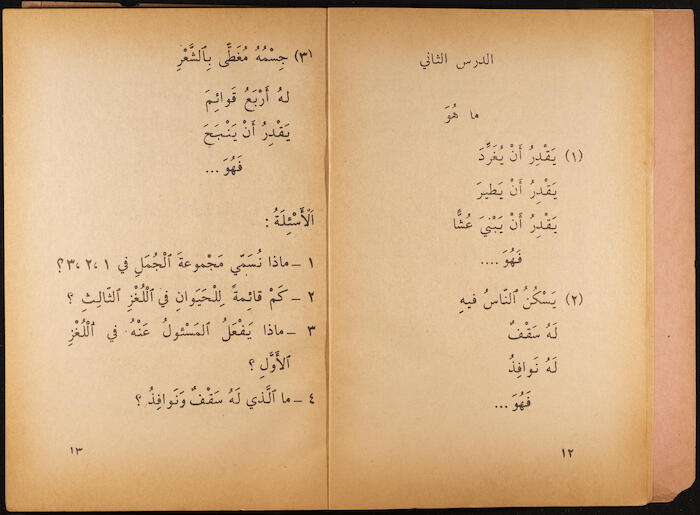 الدرس الثاني
ما هُوَ
(١) يَقْدِرُ أَنْ يُغَرِّدَ
يَقْدِرُ أَنْ يَطيرَ
يَقْدِرُ أَنْ يَبْنيَ عُشًّا
فَهُوَ ....
(٢) يَسْكُنُ ٱلنّاسُ فيهِ
لَهُ سَقْفٌ
لَهُ نَوافِذُ
فَهُوَ ...
١٢
(٣) جِسْمُهُ مُغَطًّى بِٱلشَّعْرِ
لهُ أَرْبَعُ قَوائِمَ
يَقْدِرُ أَنْ يَنْبَحَ
فَهُوَ ...
اَلْأَسْئِلَةُ :
١ – ماذا نُسَمّي مَجْموعةَ ٱلْجُمَلِ في ١ ،٢ ،٣ ؟
٢ – كَمْ قائِمةً لِلْحَيَوانِ في ٱللُّغْزِ ٱلثّالِثِ ؟
٣ – ماذا يَفْعَلُ ٱلمَسْئولُ عَنْهُ في ٱللُّغْزِ
ٱلأَوَّلِ ؟
٤ – ما ٱلَّذي لَهُ سَقْفٌ وَنَوافِذُ ؟
١٣